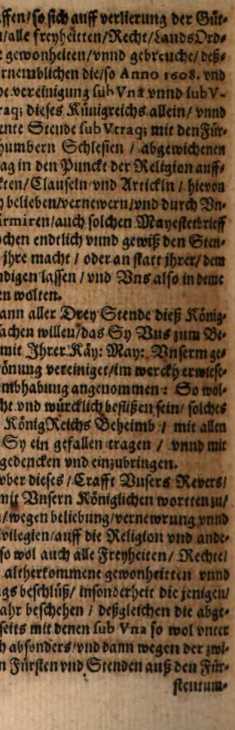 ffen/so sich auff verlierung der Güt-
n/alle freyheitten/Recht/LandsOrd-
e gewonheiten/vnnd gebreuche/deß-
rnemblichen die/so Anno 1608. vnd
he vereinigung sub Vna vnnd sub V-
raq; dieses Künigreichs allein/ vnnd
ente Stende sub Vtraq; mit den Für-
humbern Schlesien / abgewichenen
ag in den Punckt der Religion auff-
kten/Clausuln vnd Artickln / hievon
y belieben/vernewern/vnd durch Vn-
irmiren/auch solchen Mayestetbrieff
ochen endtlich vnnd gewiß den Sten-
jhre macht / oder an statt jhrer/dem
ndigen lassen / vnd Vns also in deme
en wolten.
ann aller Drey Stende dieß König-
achen willen/das Sy Vns zum Be-
mit Jhrer Käy: May: Vnserm ge-
önung vereiniget/im werck erwiese-
mbhabung angenommen: So wol-
he vnd würcklich beflissen sein/ solches
KönigReichs Beheimb / mit allen
Sy ein gefallen tragen / vnnd mit
gedencken vnd einzubringen.
vber dieses / Crafft Vnsers Revers/
mit Vnsern Königlichen wortten zu/
n/wegen beliebung/vernewrung vnnd
vilegien/auff die Religion vnd ande-
so wol auch alle Freyheiten/ Rechte/
altherkommene gewonheitten vnnd
gs beschlüß/ insonderheit die jenigen/
ahr beschehen / deßgleichen die abge-
seits mit denen sub Vna so wol vnter
ch absonders/vnd dann wegen der zwi-
n Fürsten vnd Stenden auß den Für-
stentum-